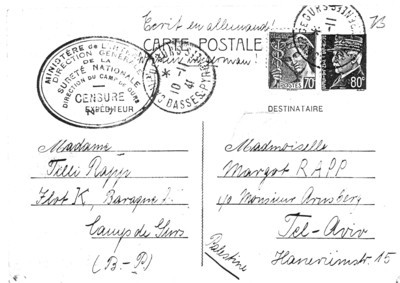 Ecrit en allemand!
CARTE POSTALE
MINISTÈRE de L'INTÉRIEUR
DIRECTION GÉNÉRALE
DE LA
SURETÉ NATIONALE
DIRECTION DU CAMP DE GURS
CENSURE
EXPÉDITEUR
BASSES-PYR
10 -1 41
POSTES 70
80c
DESTINATAIRE
Madame
Ilot K, Baraque
Camps de Gurs
(B.-P.)
Mademoiselle
Margot RAPP
c/o Monsieur Arnsberg
Tel-Aviv
Palestine
15